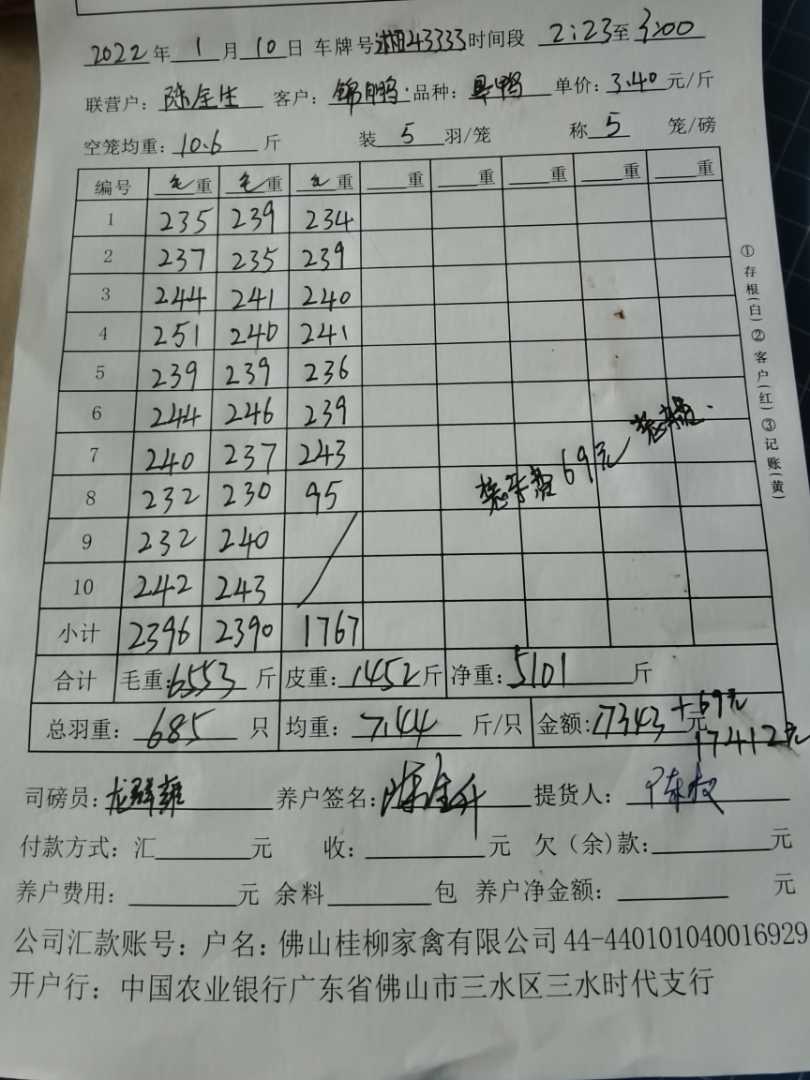 2022年1月10日 车牌号湘43333时间段 2:23至3:00
联营户：陈金生 客户：锦鹏 品种： 单价：3.40元/斤
空笼均重：10.6斤 装5羽/笼 称5笼/磅
编号 毛重 毛重 毛重 重 重 重 重
1 235 239 234
2 237 235 239
3 244 241 240
4 251 240 241
5 239 239 236
6 244 246 239
7 240 237 243
8 232 230 95
9 232 240
10 242 243
69元
小计 2396 2390 1767
合计 毛重：6553斤 皮重：1452斤 净重：5101斤
总羽重：685只 均重：7.44斤/只 金额：17343元+69元
17412元
①存根(白)②客户(红)③记账(黄)
司磅员：龙群雍 养户签名： 提货人：
付款方式：汇 元 收： 元 欠（余)款： 元
养户费用： 元 余料 包 养户净金额： 元
公司汇款账号：户名：佛山桂柳家禽有限公司 44-440101040016929
开户行：中国农业银行广东省佛山市三水区三水时代支行